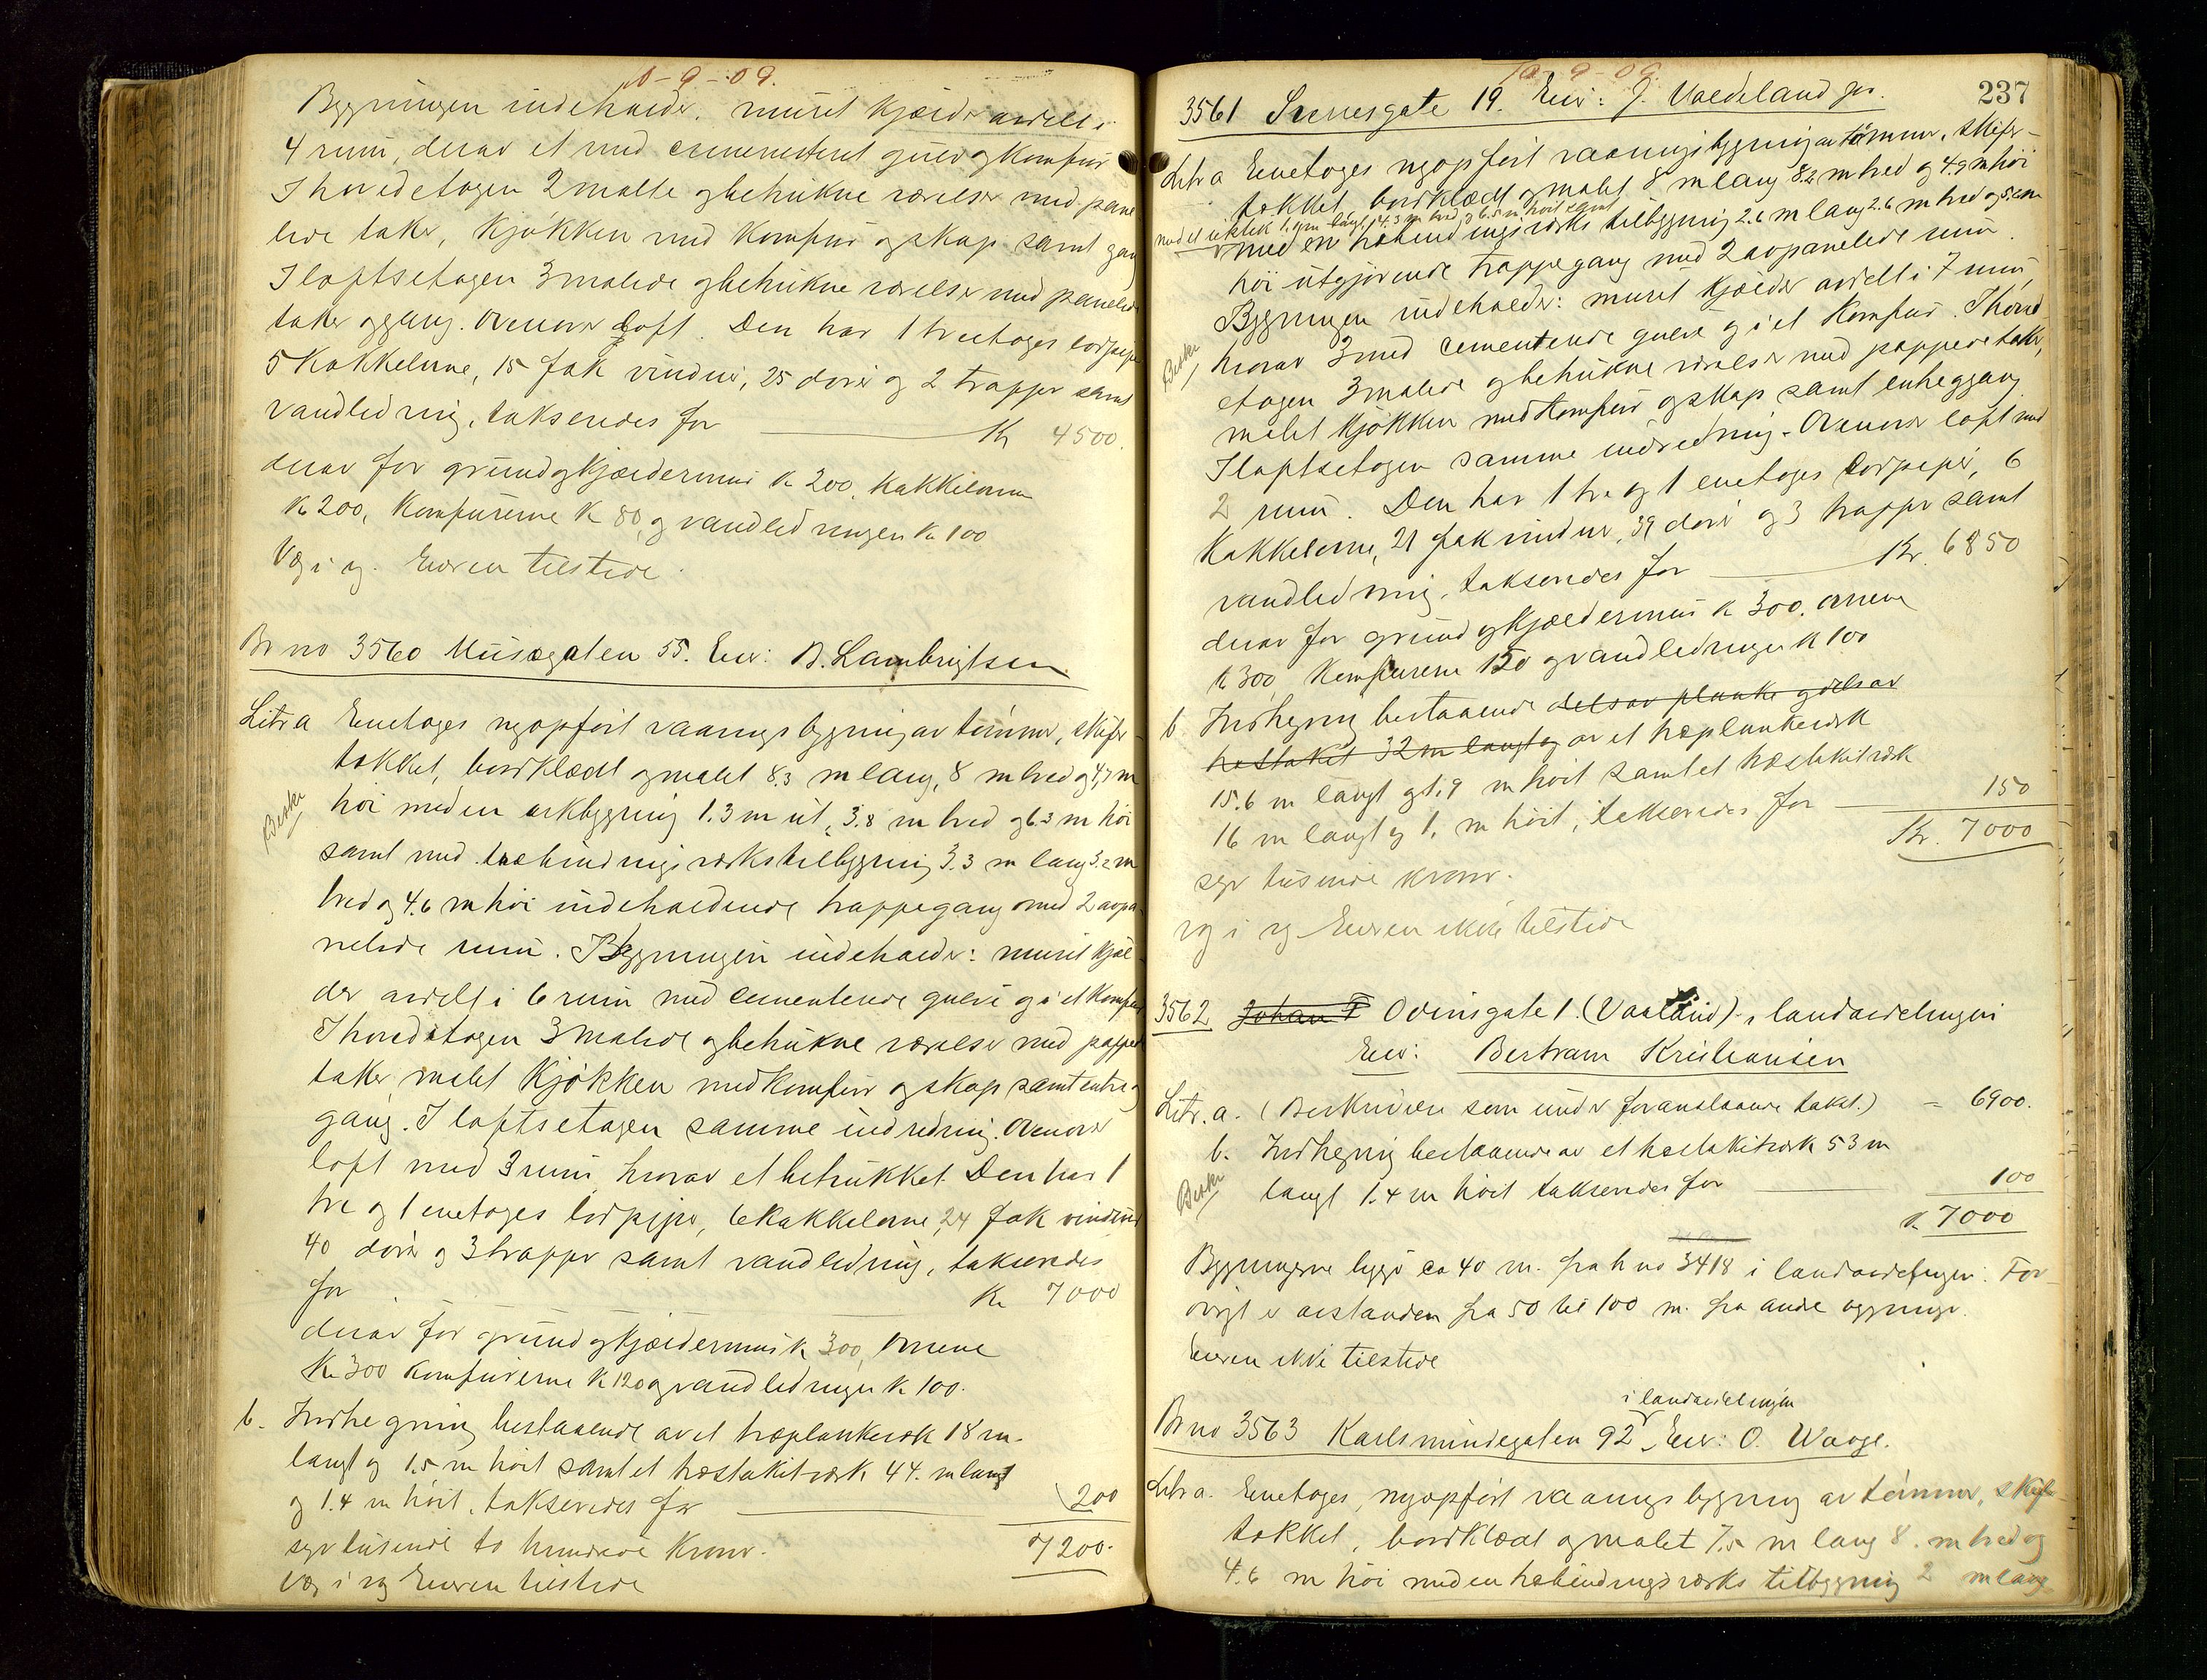 10-9-09.
Bygningen indeholder: muret kjælder avdelt i
4 rum, derav et med cementeret gulv og komfur
I hovedetagen 2 malte og betrukne værelser med pane-
lede taker, kjøkken med komfur og skap samt gang
I loftsetagen 3 malede og betrukne værelser med panelede
taker og gang. Ovenover loft. Den har 1 treetages lodpipe
5 kakkelovne, 15 fak vinduer, 25 dører og 2 trapper samt
vandledning, takseredes for Kr 4500.
derav for grund og kjældermur K 200, kakkelovnene
K 200, komfurerne K 80 og vandledningen K 100
V g i g. Eieren tilstede.
Br no 3560 Musegaten 55. Eier: B. Lambrigtsen
Litr a Enetages nyopført vaaningsbygning av tømmer, skifer-
tækket, bordklædt og malet 8.3 m lang, 8 m bred og 4,7 m
høi med en arkbygning 1.3 m ut, 3.8 m bred og 6.3 m høi
samt med træbindingsverkstilbygning 3.3 m lang 3.2 m
Beskr
bred og 4.6 m høi indeholdende trappegang med 2 avpa-
nelede rum. Bygningen indeholder: muret kjæl-
der avdelt i 6 rum med cementerede gulve og i et komfur
I hovedetagen 3 malede og betrukne værelser med pappede
taker malet kjøkken med komfur og skap samt entre og
gang. I loftsetagen samme indredning. Ovenover
loft med 3 rum hvorav et betrukket. Den har 1
tre og 1 enetages lodpiper, 6 kakkelovne, 24 fak vinduer
40 dører og 3 trapper samt vandledning, takseredes
for Kr 7000
derav for grund og kjældermur K 300, ovnene
Kr 300 komfurerne K 120 og vandledningen K 100.
b. Indhegning bestaaende av et træplankeverk 18 m.
langt og 1.5 m høit samt et træstakitverk 44. m langt
og 1.4 m høit, takseredes for 200
syv tusinde to hundrede kroner. 7200.
V g i g Eieren tilstede
10-9-09.
237
3561 Sverresgate 19. Eier: J. Vaedeland jr.
Litr a Enetages nyopført vaaningsbygning av tømmer, skifer-
tækket, bordklædt og malet 8 m lang 8.2 m bred og 4.9 m høi
med et utstik 1.9 m langt, 4.3 m bred og 6.5 m høit samt
med en træbindingsverks tilbygning 2.6 m lang 2.6 m bred og 5. m
høi utgjørende trappegang med 2 avpanelede rum.
Bygningen indeholder: muret kjælder avdelt i 7 rum
hvorav 3 med cementerede gulve og i et komfur. I hoved-
Beskr
etagen 3 malede og betrukne værelser med pappede taker,
malet kjøkken med komfur og skap samt entre og gang
I loftsetagen samme indredning. Ovenover loft med
2 rum. Den har 1 tre og 1 enetages lodpiper, 6
kakkelovne, 21 fak vinduer, 39 dører og 3 trapper samt
vandledning, takseredes for Kr. 6850
derav for grund og kjældermur K 300. ovnene
K 300 komfurerne 150 og vandledningen K 100
b Indhegning bestaaende delsav planke og delsav
træstaket 32 m langt og av et træplankeverk
15.6 m langt og 1.9 m høit samt et træstakitverk
16 m langt og 1. m høit, takseredes for 150
Kr. 7000
syv tusinde kroner.
V g i g Eieren ikke tilstede
3562 Johan F Odinsgate 1. (Vaaland) i landavdelingen
Eier: Bertram Kristiansen
Litr. a. (Beskrivelse som under foranstaaende takst.) = 6900.
b. Indhegning bestaaende av et træstakitverk 53 m
Beskr
langt 1.4 m høit takseredes for 100
K 7000
Bygningerne ligger ca 40 m. fra br no 3418 i landavdelingen. For-
øvrigt er avstanden fra 50 til 100 m. fra andre bygninger.
Eieren ikke tilstede
i landavdelingen
Br no 3563 Karlsmindegaten 92 Eier: O. Waage.
Litr a. Enetages, nyopført vaaningsbygning av tømmer, skifer-
tækket, bordklædt og malet 7.5 m lang 8. m bred og
4.6 m høi med en træbindingsverks tilbygning 2 m lang